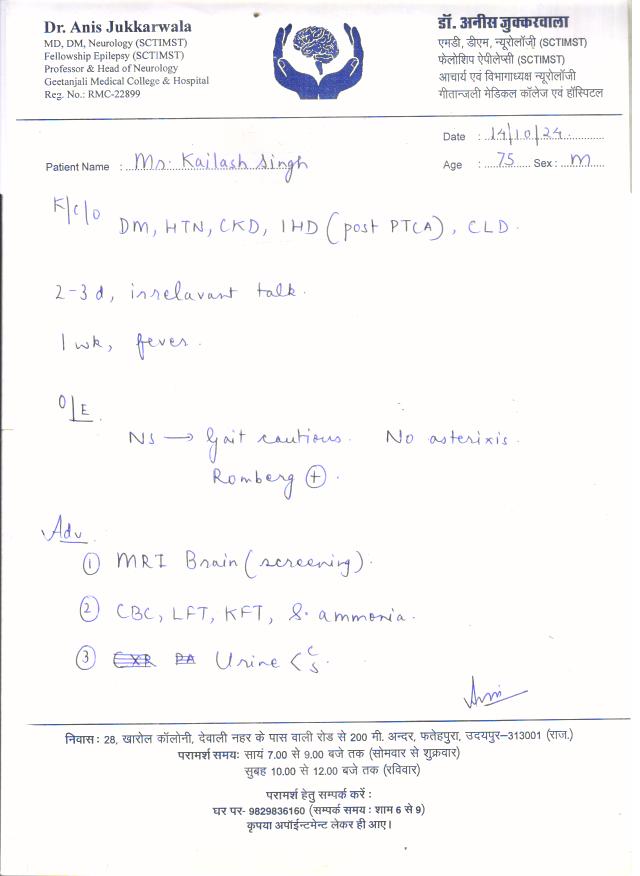 Dr. Anis Jukkarwala
MD, DM, Neurology (SCTIMST)
Fellowship Epilepsy (SCTIMST)
Professor & Head of Neurology
Geetanjali Medical College & Hospital
Reg. No.: RMC-22899
डॉ. अनीस जुक्करवाला
एमडी, डीएम, न्यूरोलॉजी (SCTIMST)
फेलोशिप ऐपीलेप्सी (SCTIMST)
आचार्य एवं विभागाध्यक्ष न्यूरोलॉजी
गीतान्जली मेडिकल कॉलेज एवं हॉस्पिटल
Date : 14/10/24
Patient Name : Mr. Kailash Singh
Age : 75 Sex : M
K/C/O
DM, HTN, CKD, IHD (post PTCA), CLD.
2-3 d, irrelavant talk.
1 wk, fever.
O/E
NS → Gait cautious. No asterixis.
Romberg (+).
Adv
① MRI Brain (screening).
② CBC, LFT, KFT, S. ammonia.
③ CXR PA Urine < C/S.
निवास : 28, खारोल कॉलोनी, देवाली नहर के पास वाली रोड से 200 मी. अन्दर, फतेहपुरा, उदयपुर–313001 (राज.)
परामर्श समय: सायं 7.00 से 9.00 बजे तक (सोमवार से शुक्रवार)
सुबह 10.00 से 12.00 बजे तक (रविवार)
परामर्श हेतु सम्पर्क करें :
घर पर- 9829836160 (सम्पर्क समय : शाम 6 से 9)
कृपया अपॉईन्टमेन्ट लेकर ही आए।